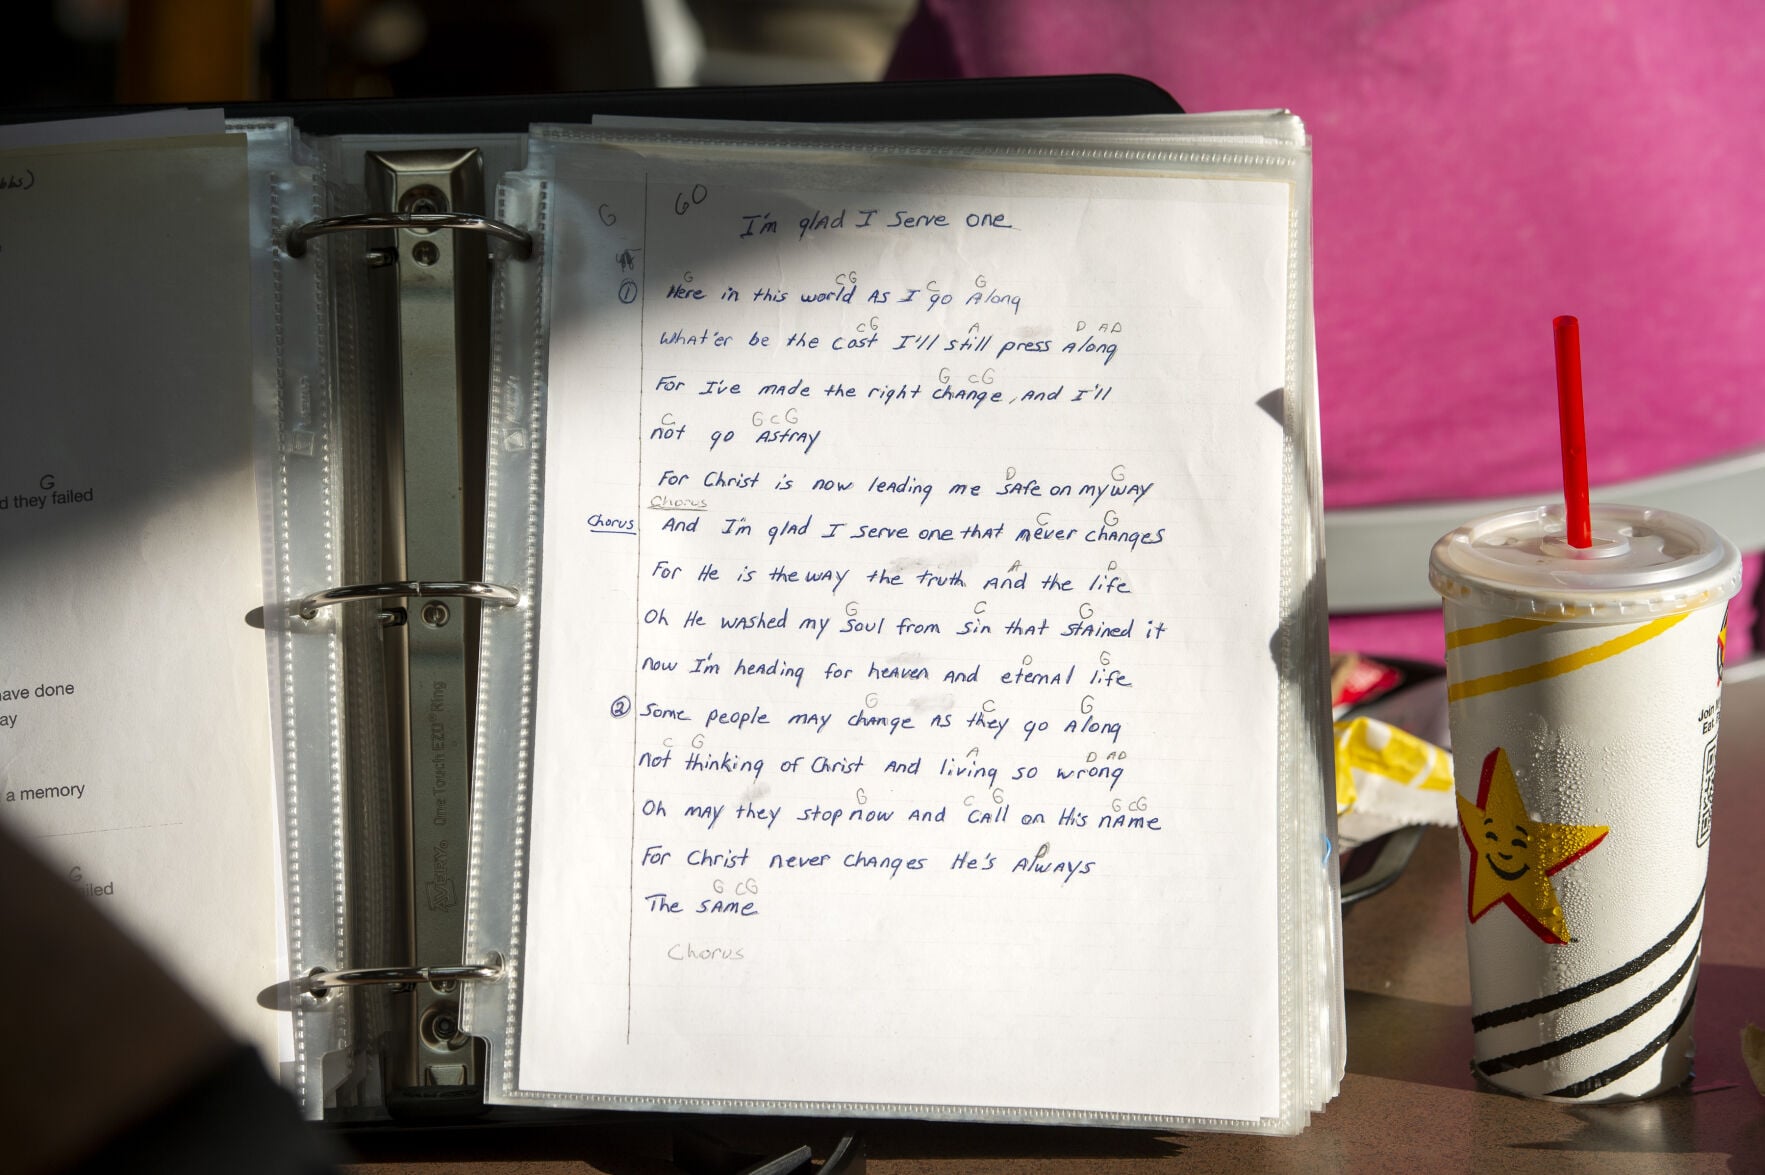 bbs)
G
d they failed
have done
ay
a memory
G
iled
AVERY One Touch EZD Ring
G
60
I'm glad I serve one
G CG C G
① Here in this world As I go Along
CG A D AD
What'er be the cost I'll still press Along
G CG
For I've made the right change, and I'll
C G C G
not go Astray
D G
For Christ is now leading me safe on my way
Chorus
C G
Chorus And I'm glad I serve one that never changes
A D
For He is the way the truth and the life
G C G
Oh He washed my soul from sin that stained it
D G
now I'm heading for heaven and eternal life
G C G
② Some people may change as they go Along
C G A D AD
not thinking of Christ and living so wrong
G C G G CG
Oh may they stop now and call on His name
D
For Christ never changes He's Always
G CG
The same
Chorus
Join
Eat